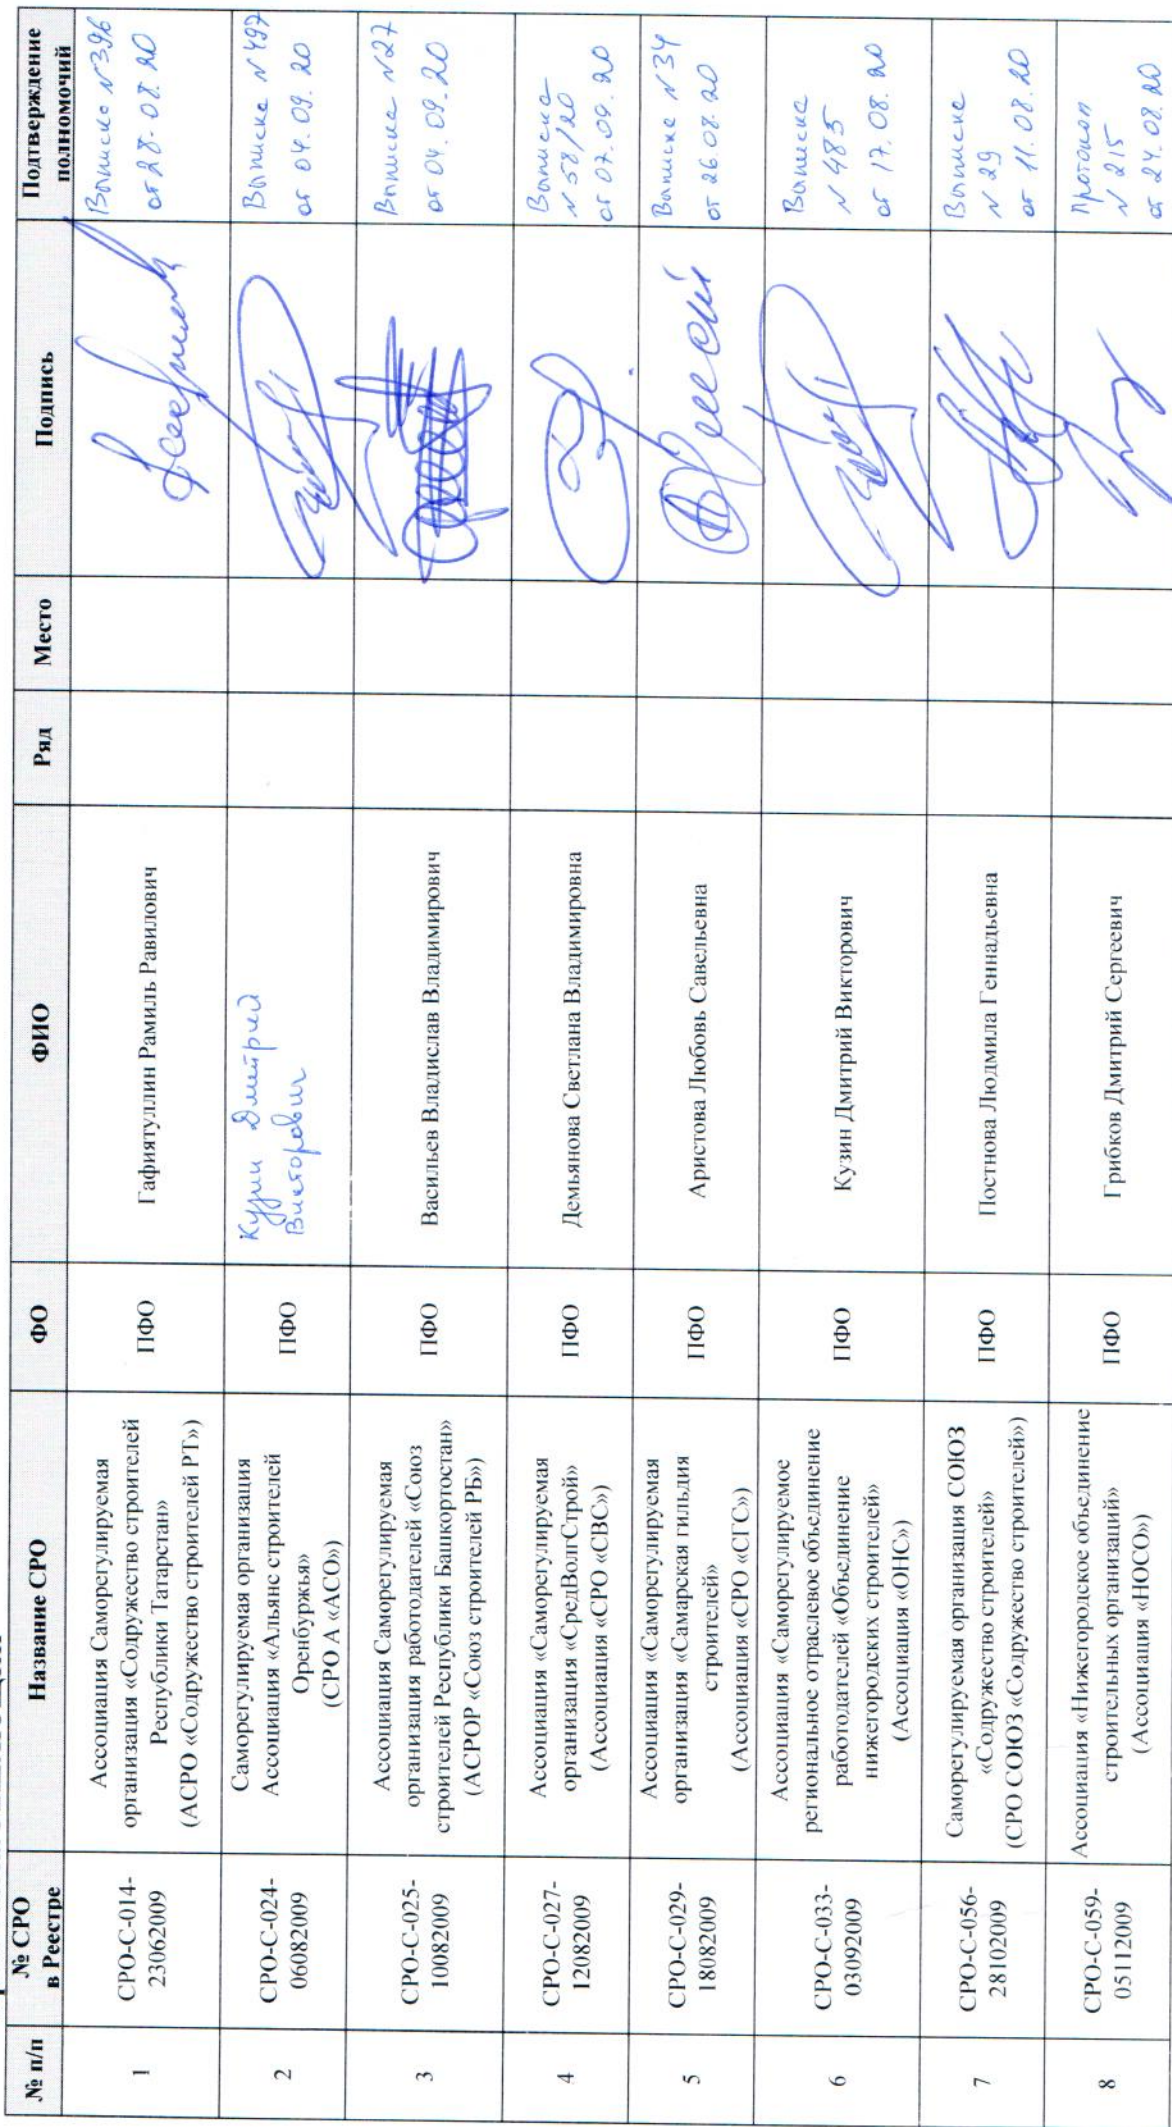 № п/п
№ СРО
в Реестре
Название СРО
ФО
ФИО
Ряд
Место
Подпись
Подтверждение
полномочий
1
СРО-С-014-
23062009
Ассоциация Саморегулируемая
организация «Содружество строителей
Республики Татарстан»
(АСРО «Содружество строителей РТ»)
ПФО
Гафиятуллин Рамиль Равилович
Выписка №396
от 28.08.20
2
СРО-С-024-
06082009
Саморегулируемая организация
Ассоциация «Альянс строителей
Оренбуржья»
(СРО А «АСО»)
ПФО
Кузин Дмитрий
Викторович
Выписка №497
от 04.09.20
3
СРО-С-025-
10082009
Ассоциация Саморегулируемая
организация работодателей «Союз
строителей Республики Башкортостан»
(АСРОР «Союз строителей РБ»)
ПФО
Васильев Владислав Владимирович
Выписка №27
от 04.09.20
4
СРО-С-027-
12082009
Ассоциация «Саморегулируемая
организация «СредВолгСтрой»
(Ассоциация «СРО «СВС»)
ПФО
Демьянова Светлана Владимировна
Выписка
№58/20
от 07.09.20
5
СРО-С-029-
18082009
Ассоциация «Саморегулируемая
организация «Самарская гильдия
строителей»
(Ассоциация «СРО «СГС»)
ПФО
Аристова Любовь Савельевна
Выписка №34
от 26.08.20
6
СРО-С-033-
03092009
Ассоциация «Саморегулируемое
региональное отраслевое объединение
работодателей «Объединение
нижегородских строителей»
(Ассоциация «ОНС»)
ПФО
Кузин Дмитрий Викторович
Выписка
№485
от 17.08.20
7
СРО-С-056-
28102009
Саморегулируемая организация СОЮЗ
«Содружество строителей»
(СРО СОЮЗ «Содружество строителей»)
ПФО
Постнова Людмила Геннадьевна
Выписка
№29
от 11.08.20
8
СРО-С-059-
05112009
Ассоциация «Нижегородское объединение
строительных организаций»
(Ассоциация «НОСО»)
ПФО
Грибков Дмитрий Сергеевич
Протокол
№215
от 24.08.20